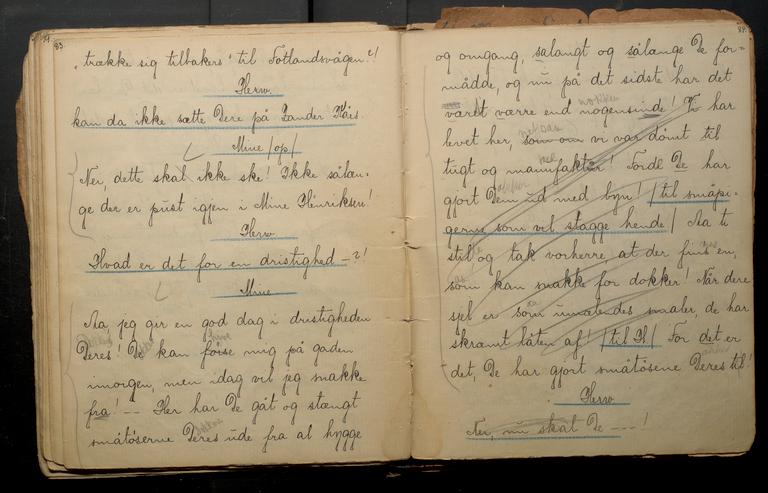 83.
"trække sig tilbakers" til Totlandsvågen?!
Herw.
kan da ikke sætte Dere på Sander Kårs.
Mine /op/
Nei, dette skal ikke ske! Ikke sålæn-
ge der er pust igjen i Mine Henriksen!
Herw
Hvad er det for en dristighed -?!
Mine
Aa jeg gir en god dag i dristigheden
Deres! De kan føise mig på gaden
imorgen, men idag vil jeg snakke
fra! -- Her har De gåt og stængt
småtøserne Deres ude fra al hygge
84.
og omgang, salangt og sålænge De for-
mådde, og nu på det sidste har det
været værre end nogensinde! Vi har
levet her, som om vi var dømt til
tugt og manufaktur! Fordi De har
gjort Dem ud med byn! /til småpi-
gerne som vil stagge hende/ Aa ti
stil og tak vorherre at der fins en,
som kan snakke for dokker! Når dere
sjel er som umælendes maaler, de har
skræmt låten af! /til H/ For det er
det, De har gjort småtøsene Deres til!
Herw
Nei, nu skal De ---!